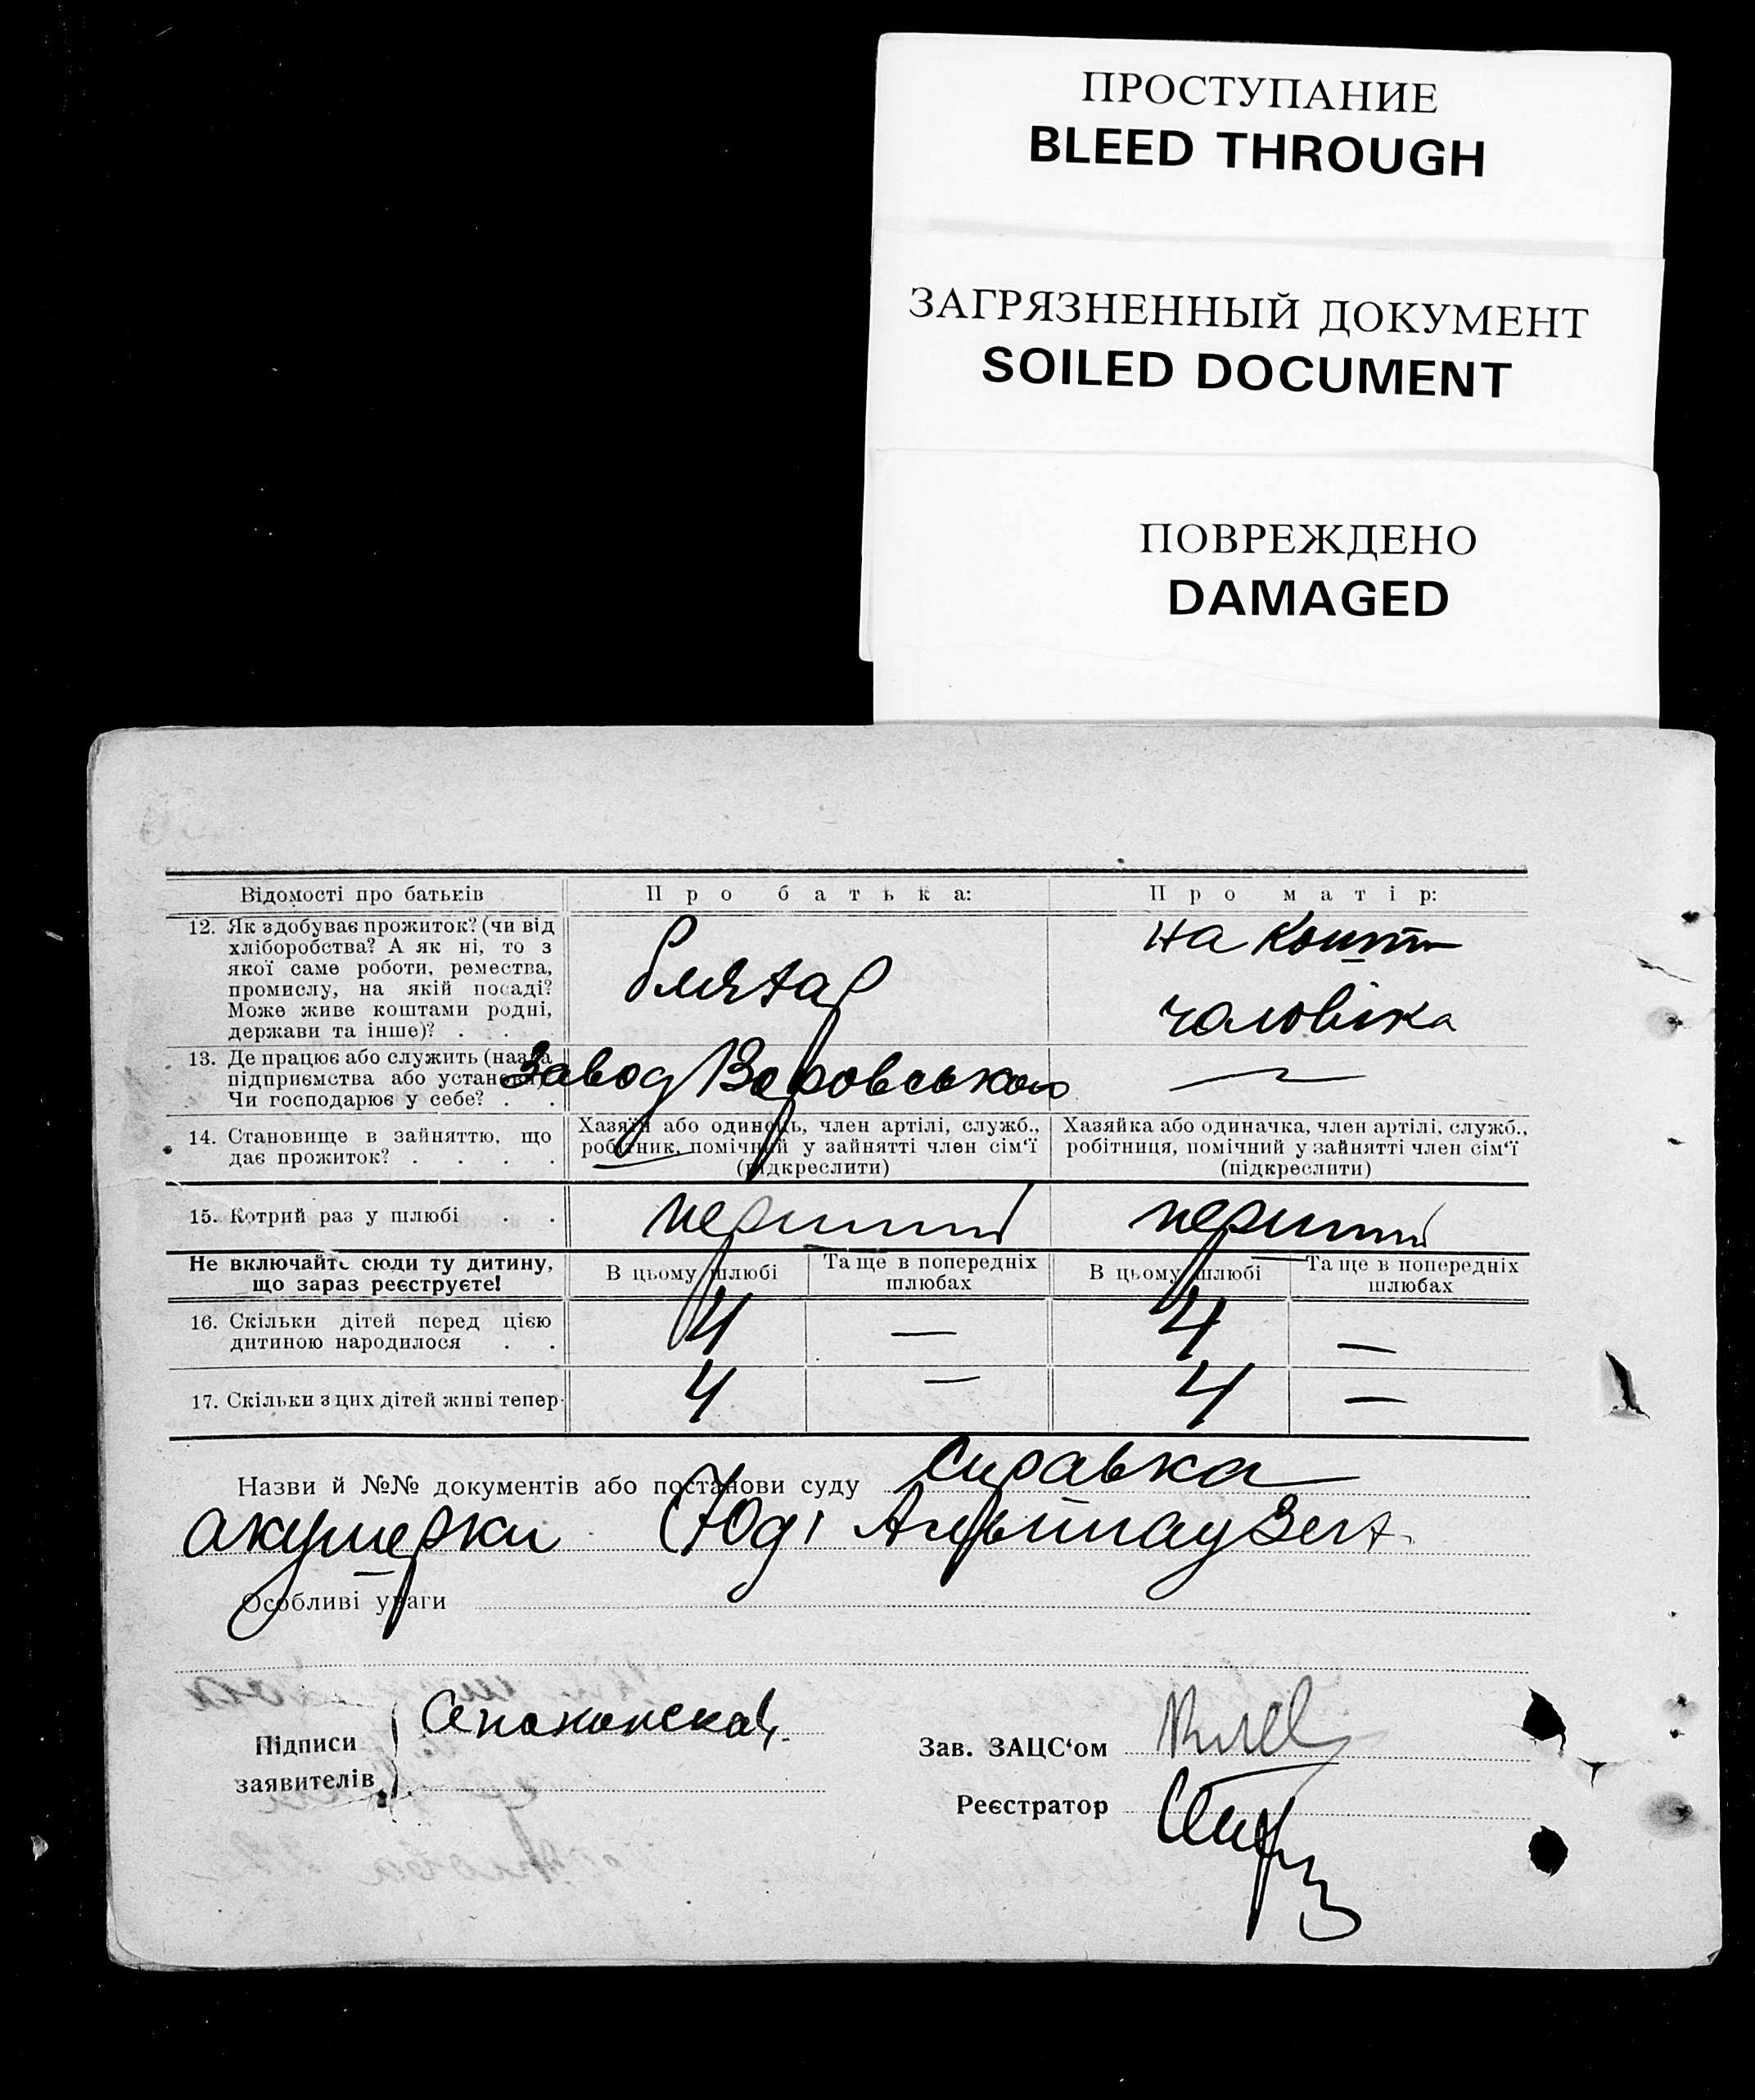 ПРОСТУПАНИЕ
BLEED THROUGH
ЗАГРЯЗНЕННЫЙ ДОКУМЕНТ
SOILED DOCUMENT
ПОВРЕЖДЕНО
DAMAGED
Відомості про батьків
Про батька:
Про матір:
12. Як здобуває прожиток? (чи від
хліборобства? А як ні, то з
якої саме роботи, ремества,
промислу, на якій посаді?
Може живе коштами родні,
держави та інше)? . .
бляхар
на кошти
чоловіка
13. Де працює або служить (назва
підприємства або установи)
Чи господарює у себе? . .
Завод Воровського
—
14. Становище в зайняттю, що
дає прожиток? . . . .
Хазяїн або одинець, член артілі, служб.,
робітник, помічний у зайнятті член сім‘ї
(підкреслити)
Хазяйка або одиначка, член артілі, служб.,
робітниця, помічний у зайнятті член сім‘ї
(підкреслити)
15. Котрий раз у шлюбі . .
перший
перший
Не включайте сюди ту дитину,
що зараз реєструєте!
В цьому шлюбі
Та ще в попередніх
шлюбах
В цьому шлюбі
Та ще в попередніх
шлюбах
16. Скільки дітей перед цією
дитиною народилося . .
4 — 4 —
17. Скільки з цих дітей живі тепер
4 — 4 —
Назви й №№ документів або постанови суду справка
акушерки
Особливі уваги
Підписи
заявителів
Зав. ЗАЦС‘ом
Реєстратор